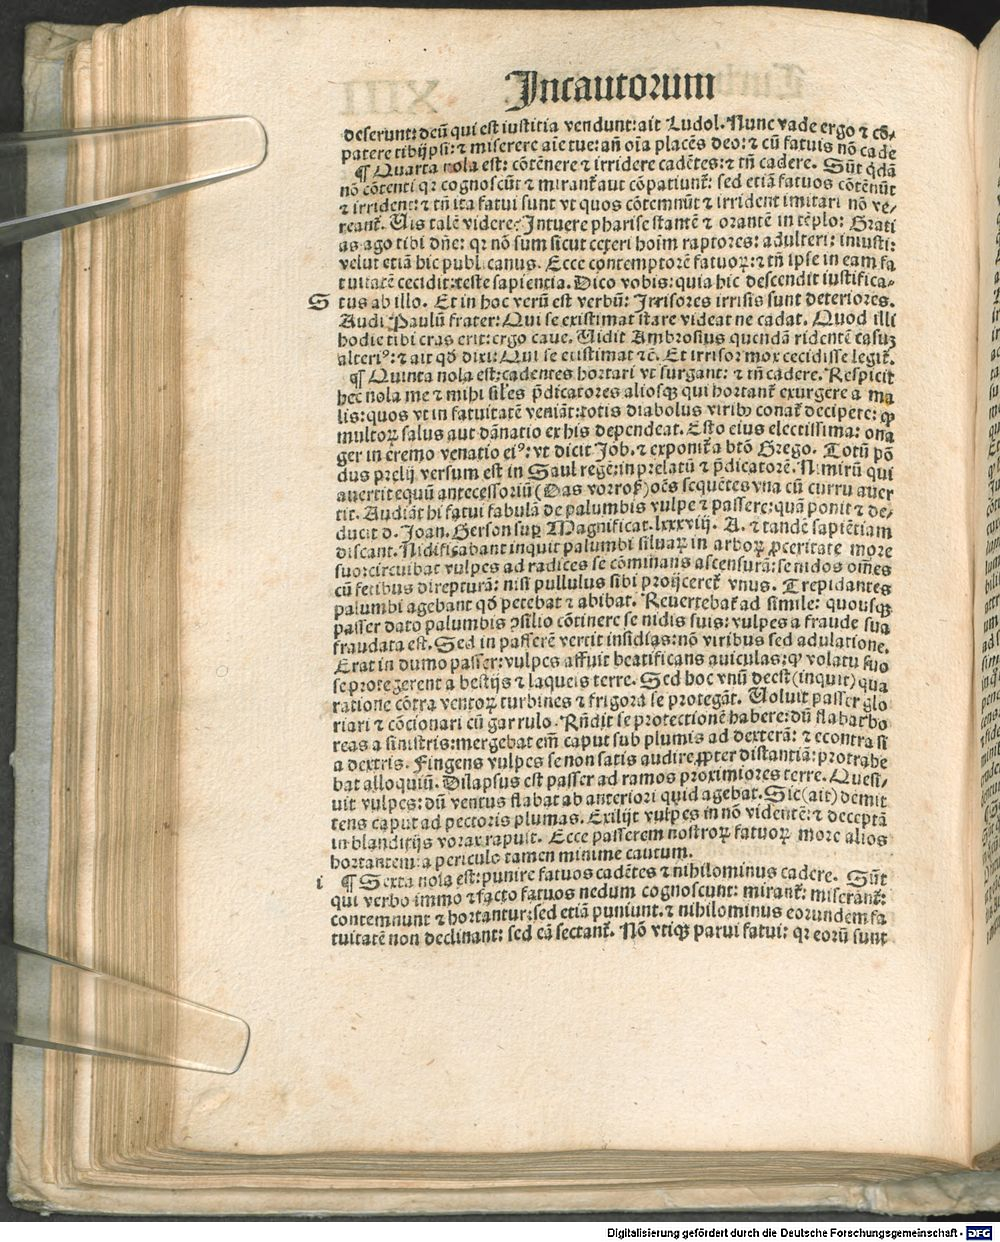 Incautorum
deserunt: deū qui est iustitia vendunt: ait Ludol. Nunc vade ergo ⁊ cō-
patere tibijpsi: ⁊ miserere aīe tue: añ oīa placēs deo: ⁊ cū fatuis nō cade
¶ Quarta nola est: cōtēnere ⁊ irridere cadētes: ⁊ tñ cadere. Sūt q̄dā
nō cōtenti qr cognoscūt ⁊ mirant̄ aut cōpatiunt̄: sed etiā fatuos cōtēnūt
⁊ irridenc: ⁊ tñ ita fatui sunt vt quos cōtemnūt ⁊ irrident imitari nō ve-
reant̄. Uis talē videre: Intuere pharise stantē ⁊ orantē in tēplo: Grati
as ago tibi dñe: qr nō sum sicut ceteri hoīm raptores: adulteri: iniusti:
velut etiā hic publicanus. Ecce contemptorē fatuoꝝ: ⁊ tñ ipse in eam fa
tuitatē cecidit: teste sapientia. Dico vobis: quia hic descendit iustifica-
S tus ab illo. Et in hoc verū est verbū: Irrisores irrisis sunt deteriores.
Audi Paulū frater: Qui se existimat stare videat ne cadat. Quod illi
hodie tibi cras erit: ergo caue. Uidit Ambrosius quendā ridentē casuꝫ
alteriꝰ: ⁊ ait qḋ dixi: Qui se existimat ⁊ē. Et irrisor mox cecidisse legit̄.
¶ Quinta nola est: cadentes hortari vt surgant: ⁊ tñ cadere. Respicit
hec nola me ⁊ mihi siles p̄dicatores aliosqꝫ qui hortant̄ exurgere a ma
lis: quos vt in fatuitatē veniāt: totis diabolus viribꝰ conat̄ decipere: qꝫ
multoꝝ salus aut dānatio ex his dependeat. Esto eius electissima: ona
ger in eremo venatio eiꝰ: vt dicit Job. ⁊ exponit̄ a btō Grego. Totū pō
dus prelij versum est in Saul regē: in prelatū ⁊ p̄dicatorē. Nimirū qui
auertit equū antecessoriū (Das vorroß) oēs sequētes vna cū curru auer
tit. Audiāt hi fatui fabulā de palumbis vulpe ⁊ passere: quā ponit ⁊ de-
ducit d. Joan. Gerson sup̄ Magnificat. lxxxviij. A. ⁊ tandē sapiētiam
discant. Nidificabant inquit palumbi siluaꝝ in arboꝝ ꝓceritate more
suo: circuibat vulpes ad radices se cōminans ascensurā: se nidos om̄es
cū fetibus direpturā: nisi pullulus sibi proijceret̄ vnus. Trepidantes
palumbi agebant qḋ petebat ⁊ abibat. Reuertebat̄ ad simile: quousqꝫ
passer dato palumbis ꝯsilio cōtinere se nidis suis: vulpes a fraude sua
fraudata est. Sed in passerē vertit insidias: nō viribus sed adulatione.
Erat in dumo passer: vulpes affuit beatificans auiculas: qꝫ volatu suo
se protegerent a bestijs ⁊ laqueis terre. Sed hoc vnū deest (inquit) qua
ratione cōtra ventoꝝ turbines ⁊ frigora se protegāt. Uoluit passer glo
riari ⁊ cōcionari cū garrulo. Rñdit se protectionē habere: dū flabat bo
reas a sinistris: mergebat em̄ caput sub plumis ad dexterā: ⁊ econtra si
a dextris. Fingens vulpes se non satis audire ꝓpter distantiā: protrahe
bat alloquiū. Dilapsus est passer ad ramos proximiores terre. Quesi-
uit vulpes: dū ventus flabat ab anteriori quid agebat. Sic (ait) demit
tens caput ad pectoris plumas. Exilijt vulpes in nō videntē: ⁊ deceptā
in blanditijs vorax rapuit. Ecce passerem nostroꝝ fatuoꝝ more alios
hortantem: a periculo tamen minime cautum.
i ¶ Sexta nola est: punire fatuos cadētes ⁊ nihilominus cadere. Sūt
qui verbo immo ⁊ facto fatuos nedum cognoscunt: mirant̄: miserāt̄:
contemnunt ⁊ hortantur: sed etiā puniunt. ⁊ nihilominus eorundem fa
tuitatē non declinant: sed eā sectant̄. Nō vtiqꝫ parui fatui: qr eorū sunt
Digitalisierung gefördert durch die Deutsche Forschungsgemeinschaft - DFG